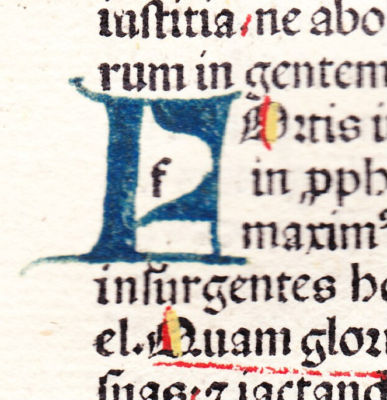 iuſtitia/ne abo
rum in gentem
F f Oꝛtis i
in ꝓph
maximꝰ
inſurgentes he
el. Quam glori
ſuas: ⁊ iactand